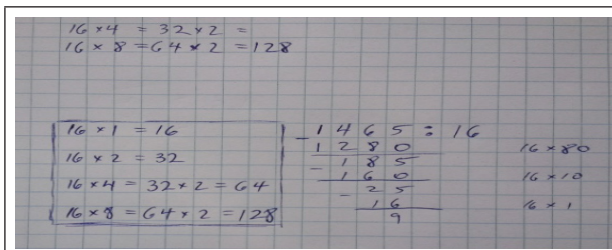 16 × 4 = 32 × 2 =
16 × 8 = 64 × 2 = 128
16 × 1 = 16
16 × 2 = 32
16 × 4 = 32 × 2 = 64
16 × 8 = 64 × 2 = 128
- 1465 : 16
1280 16 × 80
- 185
160 16 × 10
- 25
16 16 × 1
9